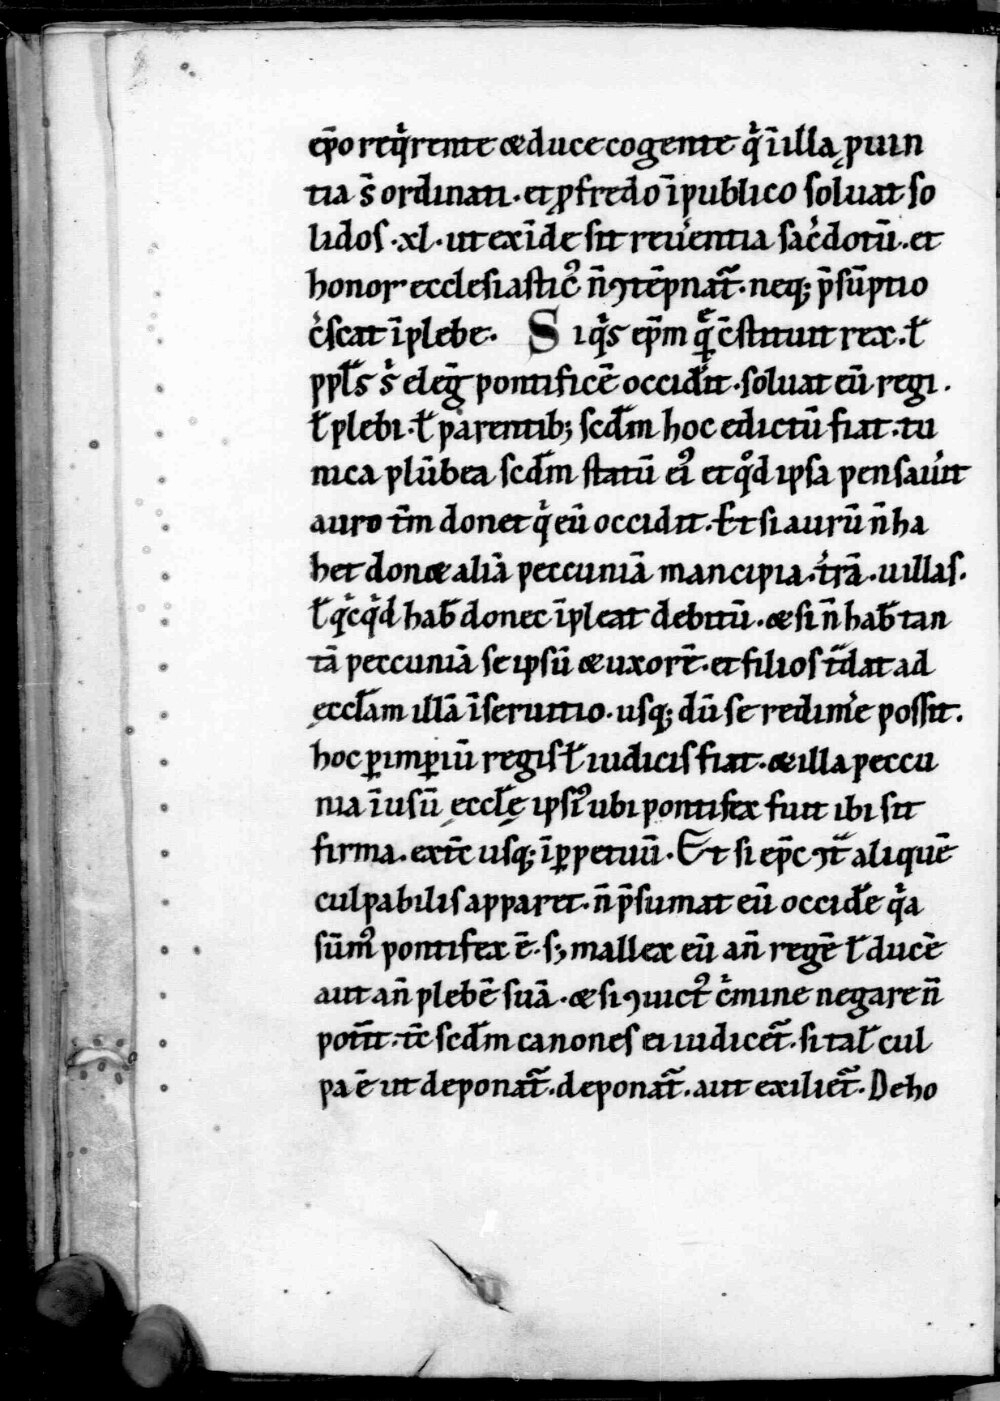 ep̄o req̇rente & duce cogente q̇ ī illa ꝓuin
tia s̄ ordinati · et ꝓ fredo ī publico soluat so
lidos · xl · ut exīde sit reuẻntia sac̓dotū · et
honor ecclesiastic᷒ n̄ ꝯtēpnat᷑ · neq; p̄sūptio
c̓scat ī plebe · Si q̇s ep̄m quē c̄stituit rex · ł
ppl̄s s̓ elegͣ pontificē occid̓it · soluat eū regi ·
ł plebi · ł parentib; scd̄m hoc edictū fiat · tu
nica plūbea scd̄m statū ei᷒ et qͦd ipsa pensau̓it
auro tm̄ donet q̇ eū occidit · Et si aurū n̄ ha
bet don& aliā peccuniā mancipia · t̓rā · uillas ·
ł q̇cq̇d hab̄ donec īpleat debitū · & si n̄ hab̄ tan
tā peccuniā se ipsū & uxorē · et filios tͣdat ad
ęccl̄am illā ī seruitio · usq; dū se redim̓e possit ·
hoc ꝑ imꝑiū regis ł iudicis fiat · & illa peccu
nia ī usū ęccl̄ę ipsi᷒ ubi pontifex fuit ibi sit
firma · ext̄c usq; īꝑpetuū · Et si ep̄c ꝯtͣ aliquē
culpabilis apparet · n̄ p̄sumat eū occid̓e q̇a
sūm᷒ pontifex ē · sꝫ mallex eū an̄ regē ł ducē
aut an̄ plebē suā · & si ꝯuict᷒ c̓mine negare n̄
pot̓it · tc̄ scd̄m canones ei iudicet᷑ · si tal̄ cul
pa ē ut deponat᷑ · deponat᷑ · aut exiliet᷑ · De ho